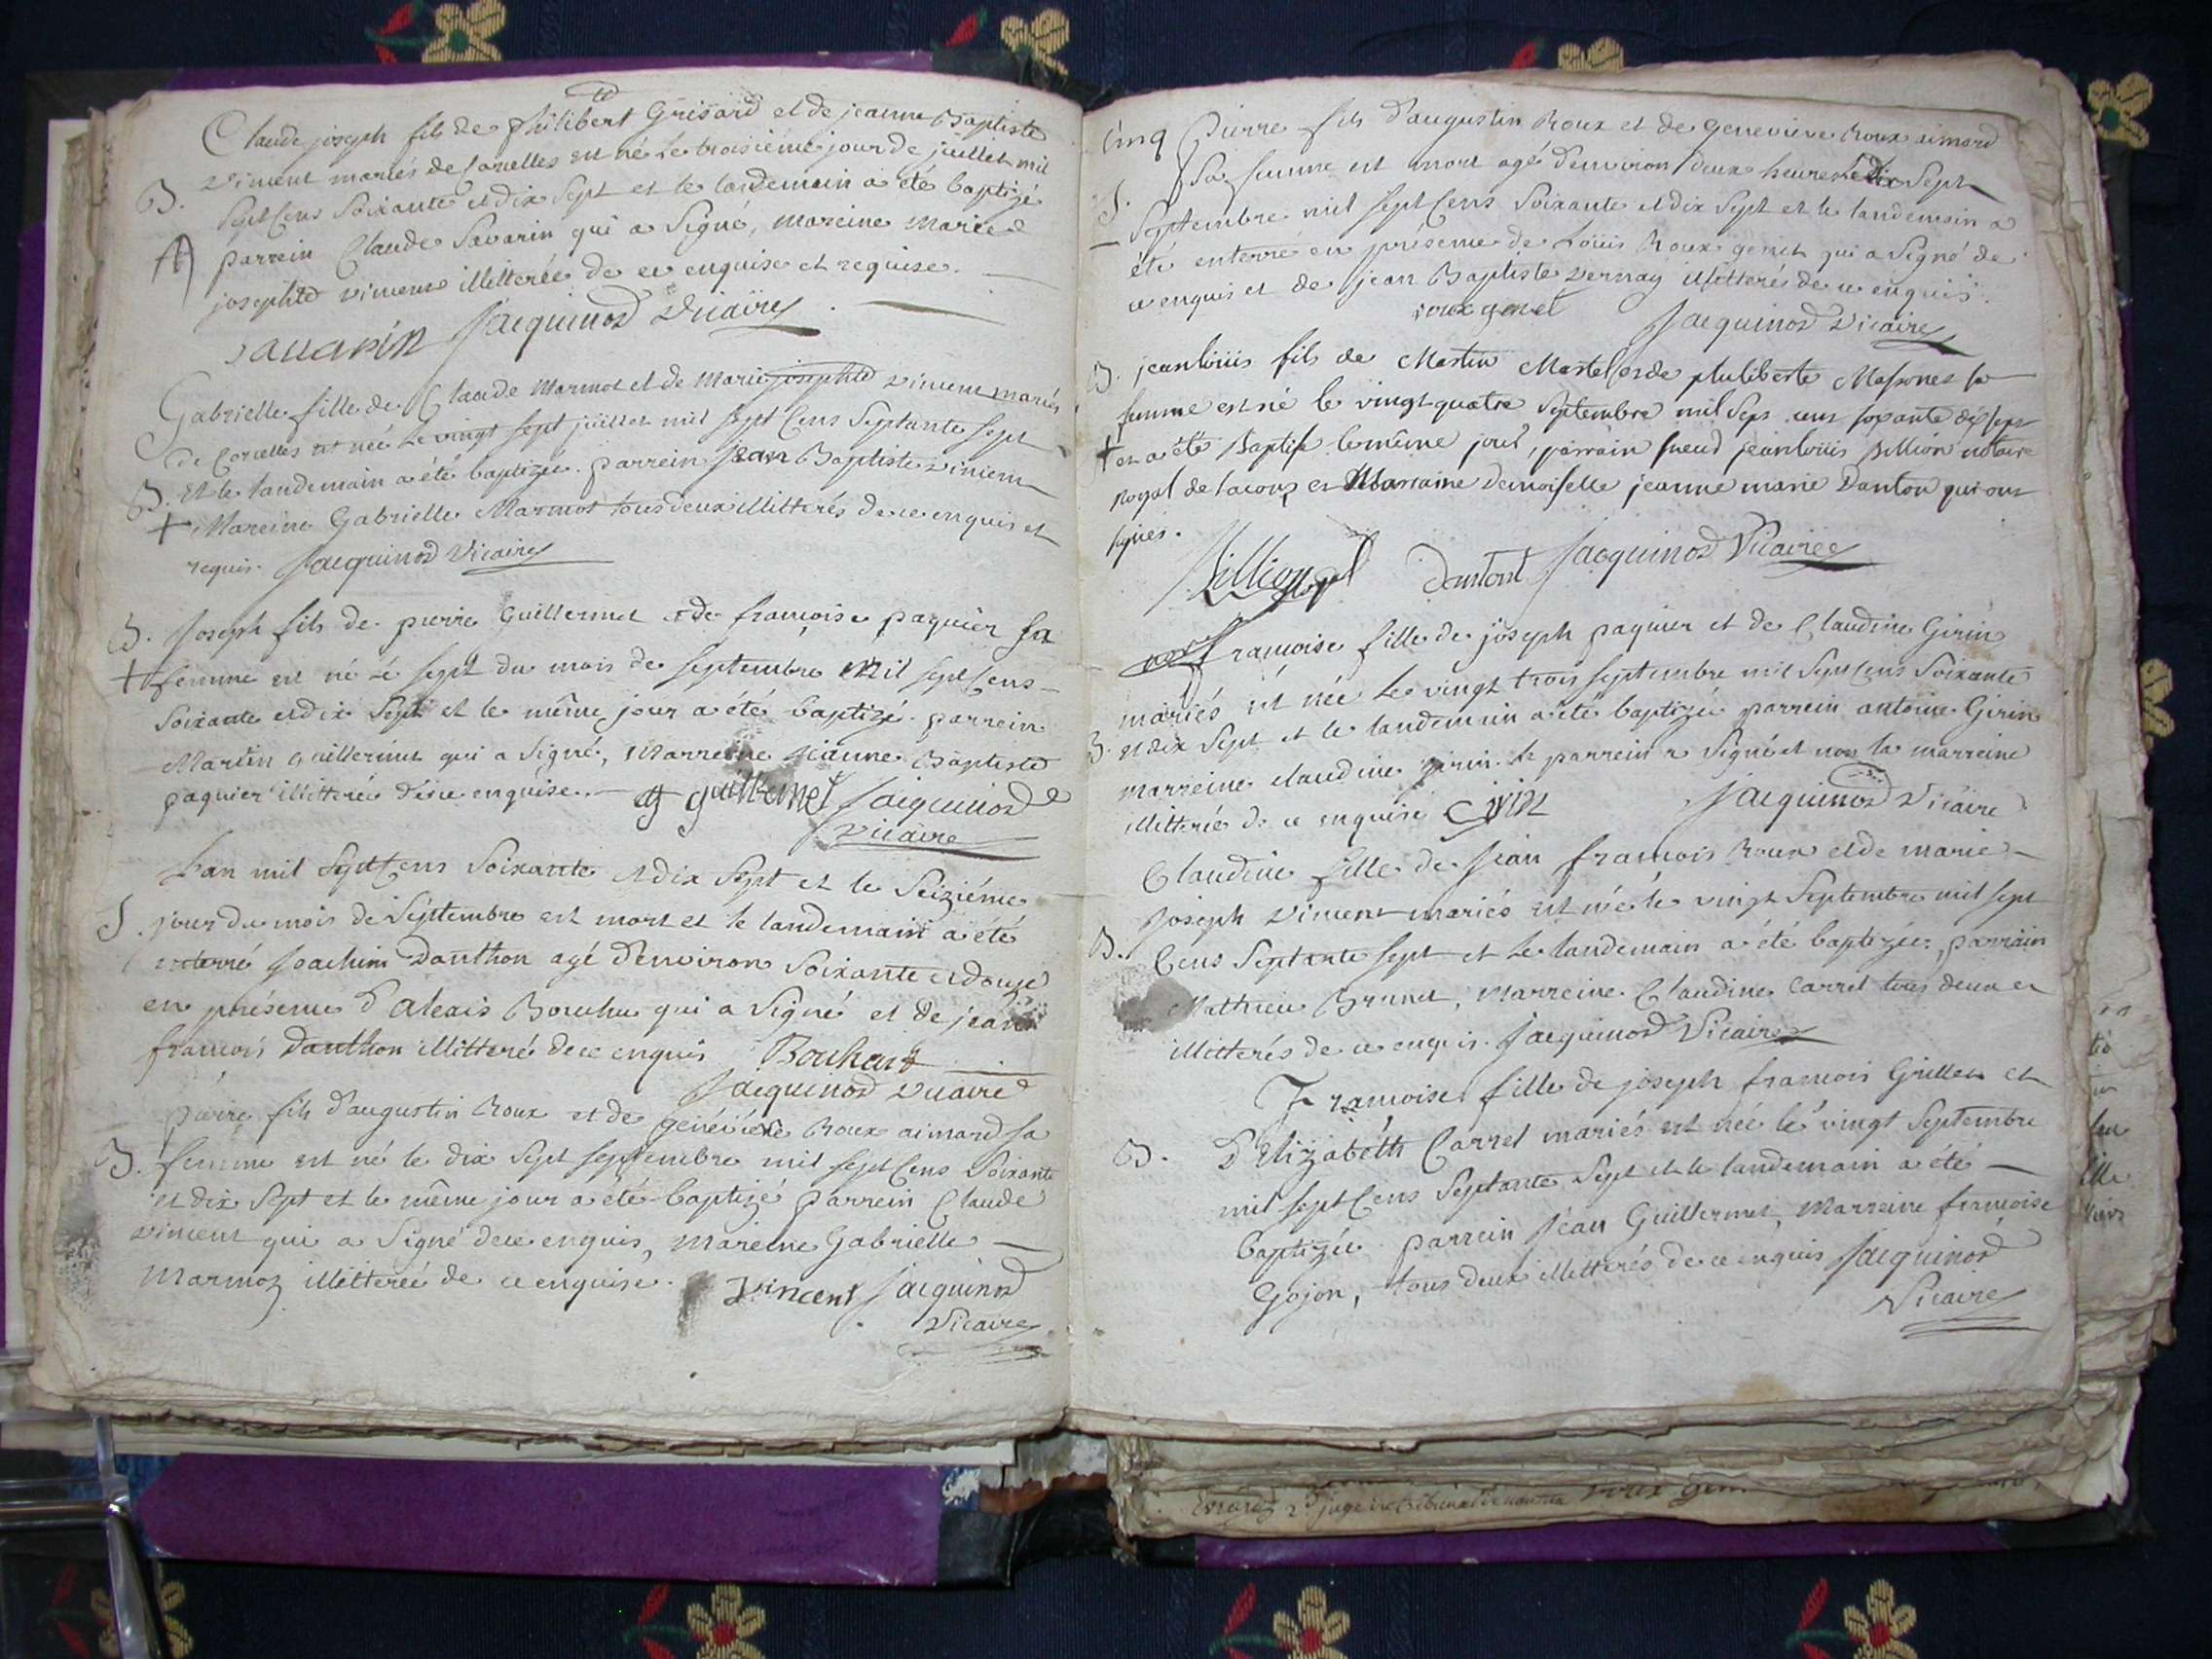 Claude joseph fils de philibert Grisard et de jeanne Baptiste
Vincent mariés de Corcelles est né Le troisième jour de juillet mil
B. Sept Cens Soixante et dix Sept et le landemain a été baptizé
parrein Claude Savarin qui a Signé, mareine Marie
josephte vincent illitterée de ce enquise et requise.
savarin Jacquinod Vicaire
Gabrielle fille de Claude Marmot et de Marie josephte vincent mariés
de Corcelles est née Le vingt sept juillet mil sept Cens Septante sept
B. et le landemain a été baptizée. parrein Jean Baptiste vincent
+ Mareine Gabrielle Marmot tous deux illitterés de ce enquis et
requis. Jacquinod Vicaire
B. Joseph fils de pierre Guillermet et de françoise paquier sa
+ femme est né Le sept du mois de septembre mil sept Cens
Soixante et dix Sept et le même jour a été baptizé. parrein
Martin guillermet qui a Signé, marreine jeanne Baptiste
paquier illitterée de ce enquise. guillermet Jacquinod
Vicaire
Lan mil Sept Cens Soixante et dix Sept et le Seiziéme
S. jour du mois de Séptembre est mort et le landemain a été
enterré Joachim Danthon agé d'environ Soixante et douze
en présence d'Alexis Bouchu qui a Signé et de jean
francois Danthon illitteré de ce enquis
Jacquinod vicaire
pierre fils d'augustin Roux et de généviéve Roux aimard sa
B. femme est né le dix Sept septembre mil sept Cens Soixante
et dix Sept et le même jour a été baptizé parrein Claude
vincent qui a Signé de ce enquis, mareine Gabrielle
Marmoz illitterée de ce enquise. Vincent Jacquinod
Vicaire
Cinq Pierre fils d'augustin Roux et de Geneviéve Roux aimard
Sa femme est mort agé d'environ deux heures Le dix Sept
S. Septembre mil sept Cens Soixante et dix Sept et le landemain a
été enterré en présence de Loüis Roux genet qui a Signé de
ce enquis et de jean Baptiste vernay illitterés de ce enquis.
roux genet Jacquinod Vicaire
B. jean loüis fils de Martin Martel et de philiberte sa
femme est né le vingt quatre Septembre mil Sept cens soixante dix sept
+ et a été Baptisé le même jour, parrain jean loüis Billion notaire
royal de et Marraine Demoiselle jeanne marie Danton qui ont
signés.
Billion Dantont Jacquinod Vicaire
francoise fille de joseph paquier et de Claudine Girin
mariés est née Le vingt trois septembre mil Sept Cens Soixante
B. et dix Sept et le landemain a été baptizée parrein antoine Girin
marreine claudine girin. le parrein a Signé et non la marreine
illitterée de ce enquise Girin Jacquinod Vicaire
Claudine fille de Jean francois Roux et de marie
Joseph Vincent mariés est née le vingt Septembre mil sept
B. Cens Septante sept et Le landemain a été baptizée, parrain
Mathieu Brunet, Marreine Claudine Carrel tous deux
illitterés de ce enquis. Jacquinod Vicaire
Francoise fille de joseph francois Grillet et
B. D'Elizabéth Carrel mariés est née le vingt Septembre
mil sept Cens Septante Sept et le landemain a été
baptizée. parrein Jean Guillermet, Marreine francoise
Gojon, tous deux illitterés de ce enquis Jacquinod
Vicaire